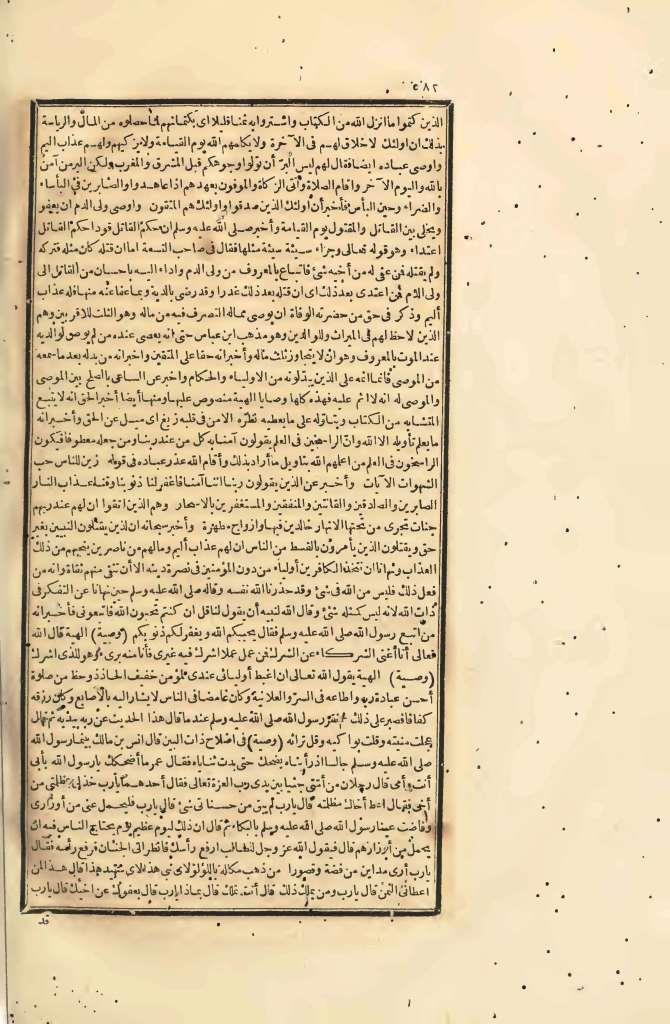 ٥٨٢
الذين كتموا ما أنزل الله من الكتاب واشتروا به ثمنا قليلا أي بكتمانهم لما حصلوه من المال والرياسة
بذلك ان اولئك لا خلاق لهم فى الآخرة ولا يكلمهم الله يوم القيامة ولا يزكيهم ولهم عذاب اليم
وأوصى عباده ايضا فقال لهم ليس البر أن تولوا وجوهكم قبل المشرق والمغرب ولكن البر من آمن
بالله واليوم الآخر وأقام الصلاة وآتى الزكاة والموفون بعهدهم اذا عاهدوا والصابرين فى البأساء
والضراء وحين البأس فأخبر أن أولئك الذين صدقوا وأولئك هم المتقون وأوصى ولى الدم ان يعفو
ويخلى بين القاتل والمقتول يوم القيامة وأخبر صلى الله عليه وسلم ان حكم القاتل قودا حكم القاتل
اعتداء وهو قوله تعالى وجزاء سيئة سيئة مثلها فقال فى صاحب النسعة اما ان قتله كان مثله فتركه
ولم يقتله فمن عفى له من أخيه شئ فاتباع بالمعروف من ولى الدم واداء اليه باحسان من القاتل الى
ولى الدم فمن اعتدى بعد ذلك اى ان قتله بعد ذلك غدرا وقد رضى بالدية وبما عفا عنه منها فله عذاب
أليم وذكر فى حق من حضرته الوفاة ان يوصى مماله التصرف فيه من ماله وهو الثلث للاقربين وهم
الذين لا حظ لهم فى الميراث وللوالدين وهو مذهب ابن عباس حتى انه يعصى عنده من لم يوص لوالديه
عند الموت بالمعروف وهو ان لا يتجاوز ثلث ماله وأخبر انه حقا على المتقين واخبر انه من بدله بعد ما سمعه
من الموصى فانما اثمه على الذين يبدلونه من الاولياء والحكام واخبر عن الساعى بالصلح بين الموصى
والموصى له انه لا اثم عليه فهذه كلها وصايا الهية منصوص عليها ومنها أيضا أخبر الحق انه لا يتبع
المتشابه من الكتاب ويتأوله على ما يعطيه نظره الا من فى قلبه زيغ اى ميل عن الحق وأخبر انه
ما يعلم تأويله الا الله وان الراسخين فى العلم يقولون آمنا به كل من عند ربنا ومن جعله معطوفا فيكون
الراسخون فى العلم من اعلمهم الله بتأويل ما أراد بذلك وأقام الله عذر عباده فى قوله زين للناس حب
الشهوات الآيات وأخبر عن الذين يقولون ربنا اننا آمنا فاغفر لنا ذنوبنا وقنا عذاب النار
الصابرين والصادقين والقانتين والمنفقين والمستغفرين بالاسحار وهم الذين اتقوا ان لهم عند ربهم
جنات تجرى من تحتها الانهار خالدين فيها وازواج مطهرة وأخبر سبحانه ان الذين يقتلون النبيين بغير
حق ويقتلون الذين يأمرون بالقسط من الناس ان لهم عذاب أليم وما لهم من ناصرين ينجيهم من ذلك
العذاب ونهانا ان نتخذ الكافرين أولياء من دون المؤمنين فى نصرة دينه الا أن نتقى منهم تقاة وانه من
فعل ذلك فليس من الله فى شئ وقد حذرنا الله نفسه وقاله صلى الله عليه وسلم حين نهانا عن التفكر فى
ذات الله لانه ليس كمثله شئ وقال الله لنبيه أن يقول لنا قل ان كنتم تحبون الله فاتبعونى فأخبر انه
من اتبع رسول الله صلى الله عليه وسلم فقال يحببكم الله ويغفر لكم ذنوبكم (وصية) الهية قال الله
تعالى أنا أغنى الشركاء عن الشرك فمن عمل عملا اشرك فيه غيرى فأنا منه برئ وهو للذى اشرك
(وصية) الهية يقول الله تعالى ان اغبط أوليائى عندى لمؤمن خفيف الحاذ ذو حظ من صلاة
أحسن عبادة ربه واطاعه فى السر والعلانية وكان غامضا فى الناس لا يشار اليه بالأصابع وكان رزقه
كفافا فصبر على ذلك ثم نقر رسول الله صلى الله عليه وسلم عند ما قال هذا الحديث عن ربه بيديه ثم قال
عجلت منيته وقلت بواكيه وقل تراثه (وصية) فى اصلاح ذات البين قال انس بن مالك بينما رسول الله
صلى الله عليه وسلم جالسا اذ رأيناه يضحك حتى بدت ثناياه فقال عمر ما أضحكك يا رسول الله بأبى
أنت وأمى قال رجلان من أمتى جثيا بين يدى رب العزة تعالى فقال أحدهما يا رب خذ لى بمظلمتى من
أخى فقال اعط أخاك مظلمته قال يارب لم يبق من حسناتى شئ قال يارب فليحمل عنى من أوزارى
وفاضت عينا رسول الله صلى الله عليه وسلم بالبكاء ثم قال ان ذلك ليوم عظيم يوم يحتاج الناس فيه ان
يحمل من أوزارهم قال فيقول الله عز وجل للطالب ارفع رأسك فانظر الى الجنان فرفع رأسه فقال
يارب أرى مداين من فضة وقصورا من ذهب مكللة باللؤلؤ لاى نبى هذا لاى شهيد هذا قال هذا لمن
اعطانى الثمن قال يارب ومن يملك ذلك قال أنت تملك قال بماذا يارب قال بعفوك عن اخيك قال يارب
قد